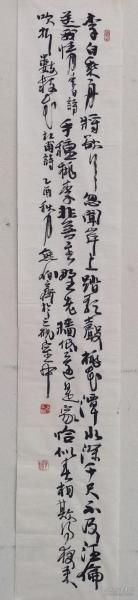 李白乘舟将欲行忽闻岸上踏歌聲桃花潭水深千尺不及汪倫
送我情李白詩手種桃李非無主野老墙低還是家恰似春相欺得夜来
吹折數枝花杜甫詩乙酉秋月